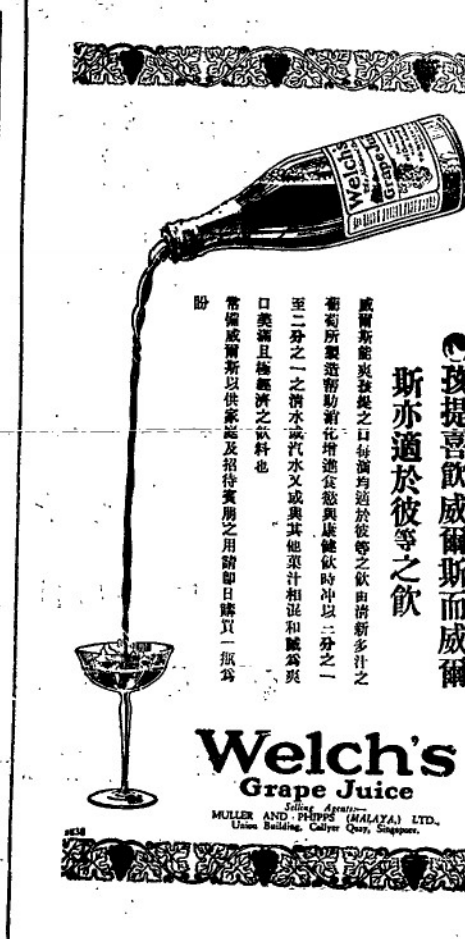 Welch's
Grape Juice
孩提喜飲威爾斯而威爾
斯亦適於彼等之飲
威爾斯能爽孩提之口每滴均適於彼等之飲由清新多汁之
葡萄所製造帮助消化增進食慾與康健飲時冲以二分之一
至二分之一之清水或汽水又或與其他菓汁相混和誠爲爽
口美滿且極經濟之飲料也
常備威爾斯以供家庭及招待賓朋之用請即日購買一瓶爲
盼
Welch's
Grape Juice
Selling Agents:—
MULLER AND PHIPPS (MALAYA,) LTD.,
Union Building, Collyer Quay, Singapore.